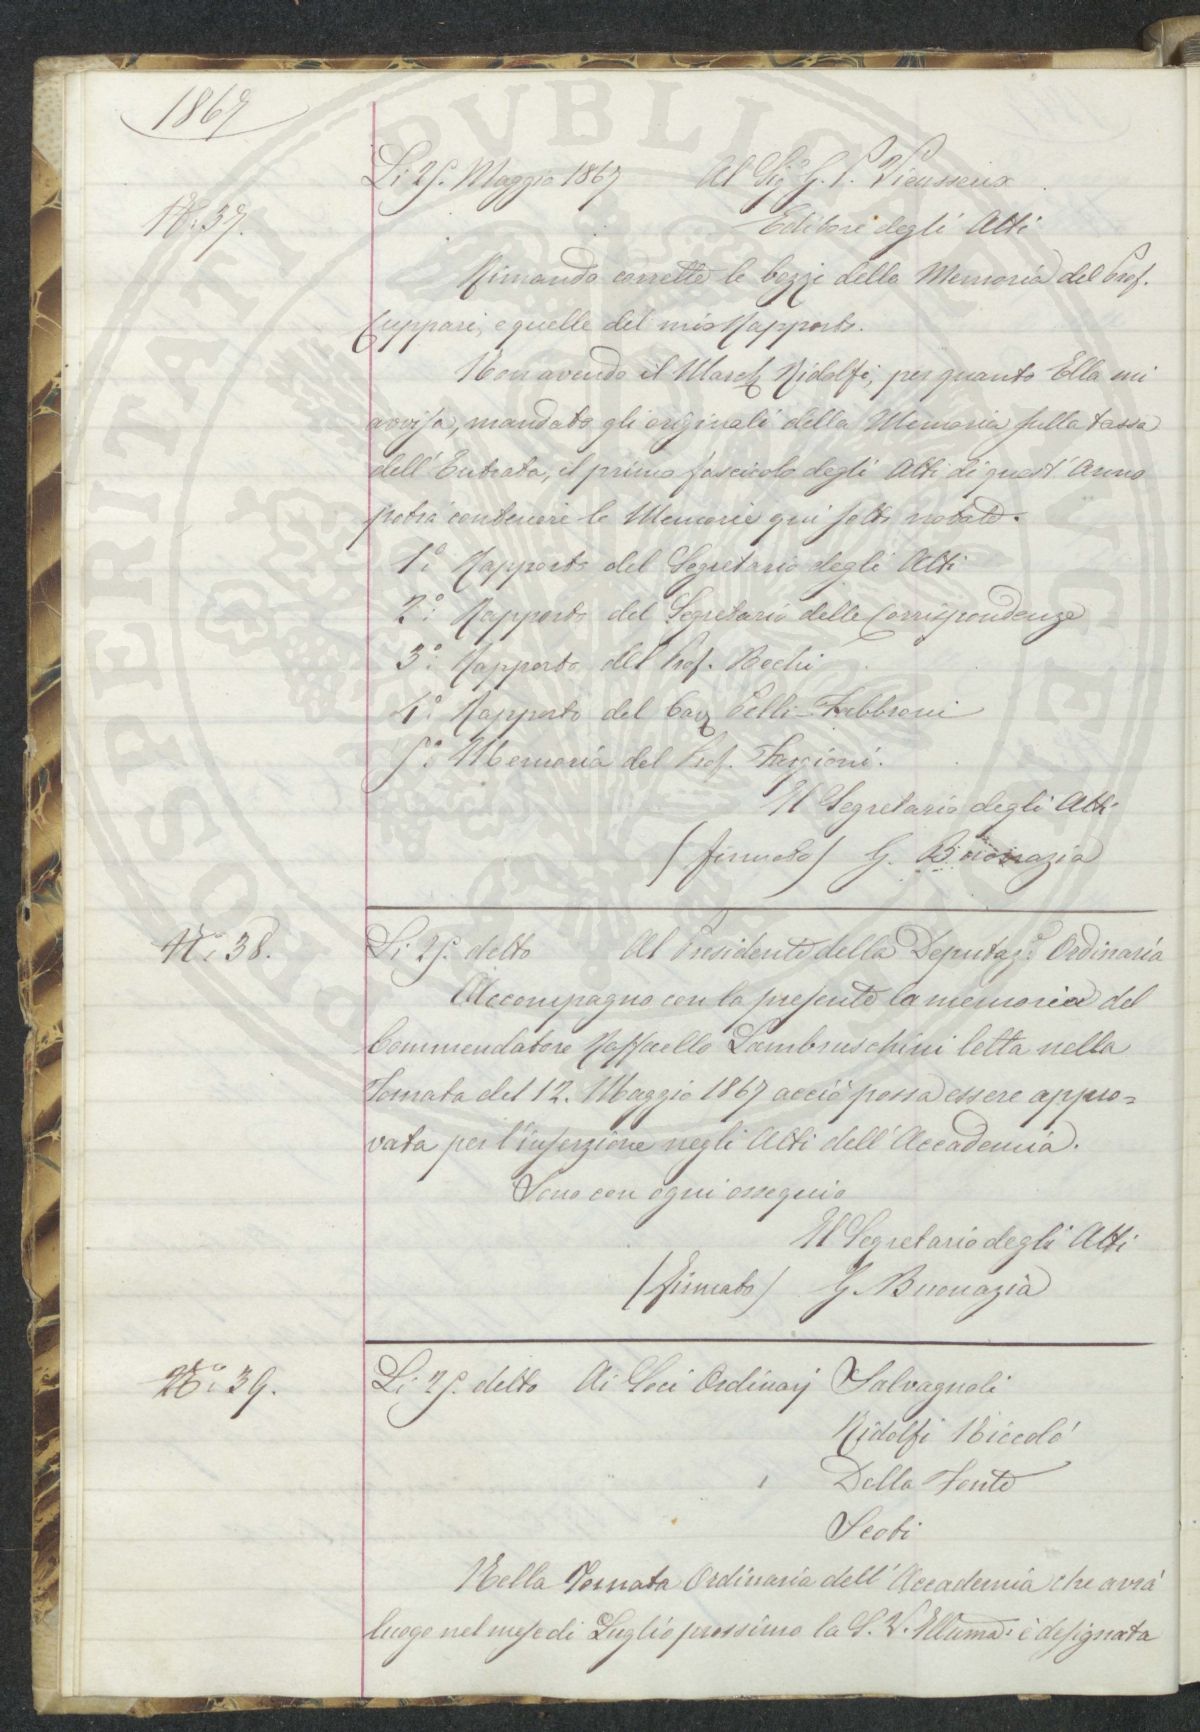 1867
Li 25. Maggio 1867 Al Sig.r G. P. Vieusseux
N.o 37. Editore degli Atti
Rimando corrette le bozze della Memoria del Prof.
Cuppari, e quelle del mio Rapporto.
Non avendo il March. Ridolfi, per quanto Ella mi
avvisa, mandato gli originali della Memoria sulla tassa
dell'Entrata, il primo fascicolo degli Atti di quest'Anno
potrà contenere le Memorie qui sotto notate.
1.o Rapporto del Segretario degli Atti
2.o Rapporto del Segretario delle Corrispondenze
3.o Rapporto del Prof. Bechi
4.o Rapporto del Cav. Pelli-Fabbroni
5.o Memoria del Prof. Targioni.
Il Segretario degli Atti
(firmato) G. Buonazia
N.o 38. Li 25. detto Al Presidente della Deputaz.e Ordinaria
Accompagno con la presente la memoria del
Commendatore Raffaello Lambruschini letta nella
Tornata del 12. Maggio 1867 acciò possa essere appro=
vata per l'inserzione negli Atti dell'Accademia.
Sono con ogni ossequio
Il Segretario degli Atti
(firmato) G. Buonazia
N.o 39. Li 25. detto Ai Soci Ordinarj Salvagnoli
Ridolfi Niccolò
Della Fonte
Scoti
Nella Tornata Ordinaria dell'Accademia che avrà
luogo nel mese di Luglio prossimo la S. V. Illuma: è designata
PROSPERITATI PVBLICAE AVGENDAE